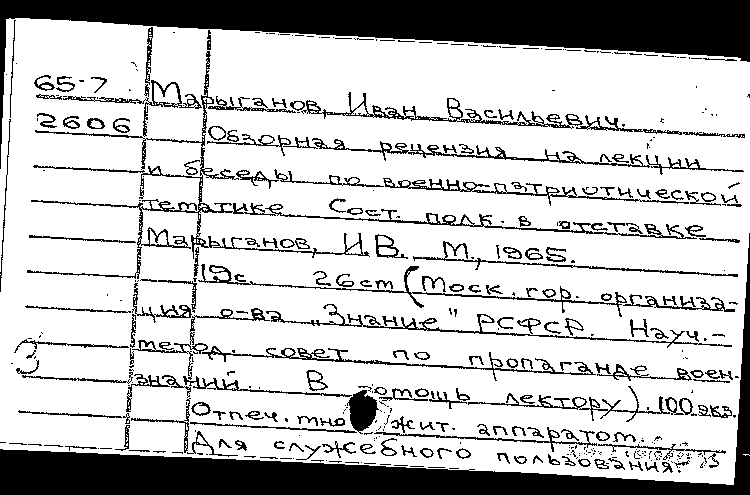 65-7 Марыганов, Иван Васильевич.
2606 Обзорная рецензия на лекции
и беседы по военно-патриотической
тематике Сост. полк. в отставке
Марыганов, И.В. М., 1965.
19с. 26см (Моск. гор. организа-
ция о-ва „Знание" РСФСР. Науч.-
метод. совет по пропаганде воен.
знаний. В помощь лектору). 100 экз.
Отпеч. множит. аппаратом.
Для служебного пользования.
3